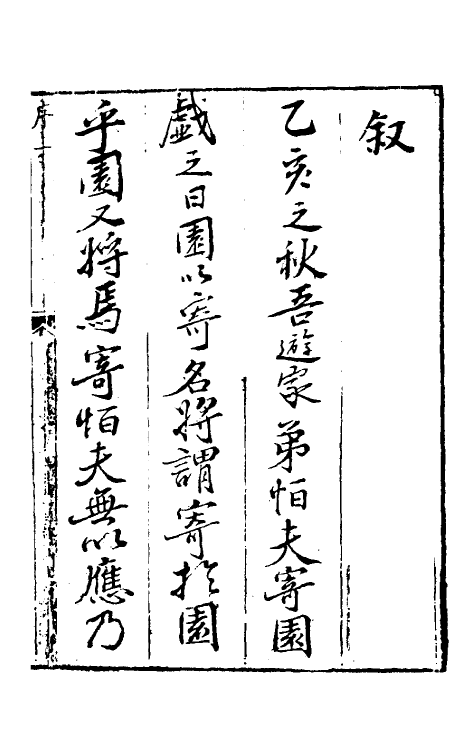 叙
乙亥之秋吾遊家弟怕夫寄園
戯之曰園以寄名將謂寄扵園
乎園又將焉寄怕夫無以應乃
序一